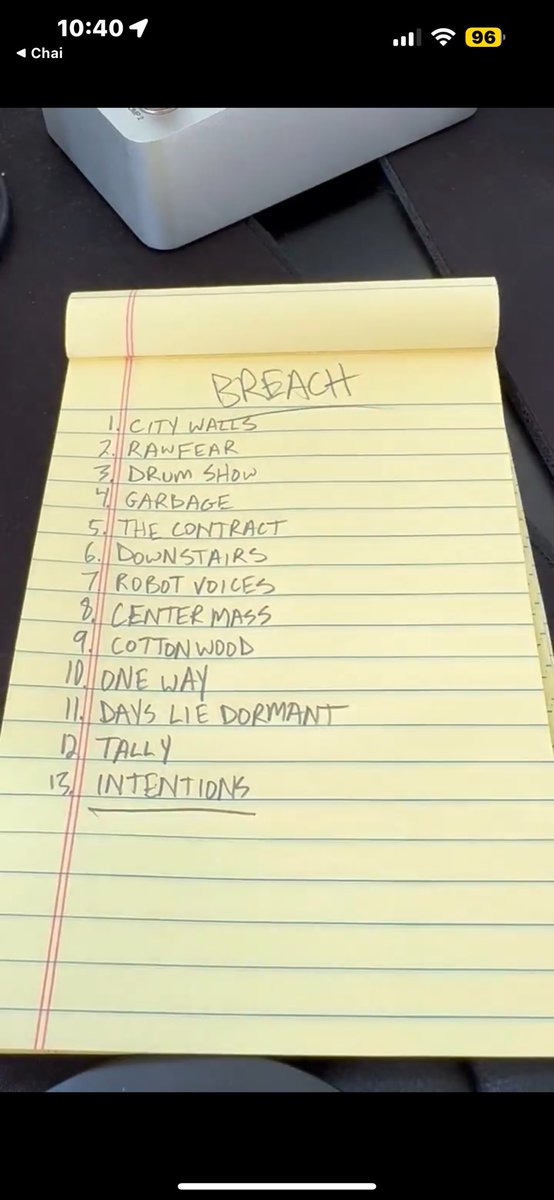 10:40
96
◀ Chai
BREACH
1. CITY WALLS
2. RAWFEAR
3. DRUM SHOW
4. GARBAGE
5. THE CONTRACT
6. DOWNSTAIRS
7. ROBOT VOICES
8. CENTER MASS
9. COTTONWOOD
10. ONE WAY
11. DAYS LIE DORMANT
12. TALLY
13. INTENTIONS